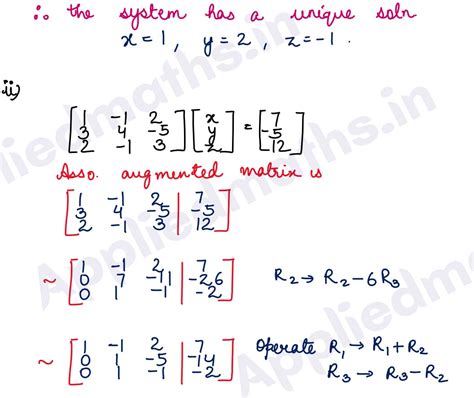 ∴ the system has a unique soln
x = 1 , y = 2 , z = -1 .
ii)
[1 -1 2; 3 4 -5; 2 -1 3] [x; y; z] = [7; -5; 12]
Asso. augmented matrix is
[1 -1 2 | 7; 3 4 -5 | -5; 2 -1 3 | 12]
~ [1 -1 2 | 7; 0 7 -11 | -26; 0 1 -1 | -2] R2 → R2 - 6R3
~ [1 -1 2 | 7; 0 1 -5 | -14; 0 1 -1 | -2] Operate R1 → R1 + R2
R3 → R3 - R2
Appliedmaths.in
Appliedmaths.in